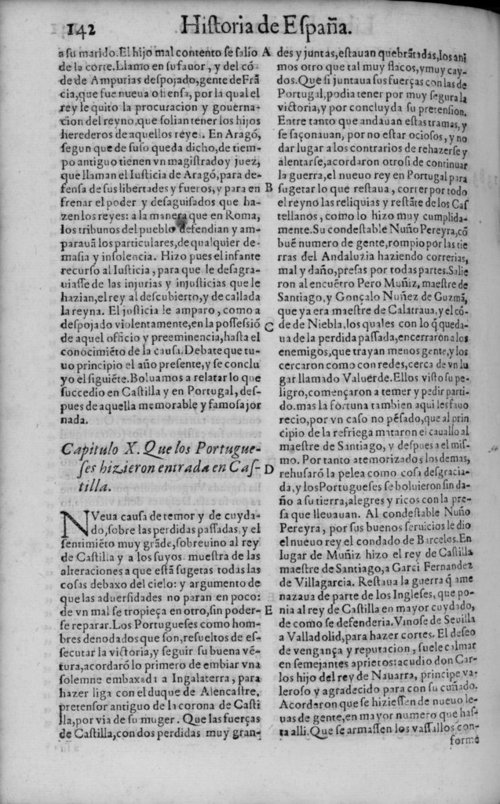 142 Historia de España.
a su marido. El hijo mal contento se salio
de la corte. Llamo en su fauor, y del cõ-
de de Ampurias despojado, gente de Frã
cia, que fue nueua ofensa, por la qual el
rey le quito la procuracion y gouerna-
cion del reyno, que solian tener los hijos
herederos de aquellos reyes. En Aragõ,
segun que de suso queda dicho, de tiem-
po antiguo tienen vn magistrado y juez,
que llaman el Iusticia de Aragõ, para de-
fensa de sus libertades y fueros, y para en
frenar el poder y desaguisados que ha-
zen los reyes: a la manera que en Roma,
los tribunos del pueblo defendian y am-
parauã los particulares, de qualquier de-
masia y insolencia. Hizo pues el infante
recurso al Iusticia, para que le desagra-
uiasse de las injurias y injusticias que le
hazian, el rey al descubierto, y de callada
la reyna. El justicia le amparo, como a
despojado violentamente, en la possessiõ
de aquel officio y preeminencia, hasta el
conocimiẽto de la causa. Debate que tu-
uo principio el año presente, y se conclu
yo el siguiẽte. Boluamos a relatar lo que
succedio en Castilla y en Portugal, des-
pues de aquella memorable y famosa jor
nada.
Capitulo X. Que los Portugue-
ses hizieron entrada en Cas-
tilla.
NVeua causa de temor y de cuyda-
do, sobre las perdidas passadas, y el
sentimiẽto muy grãde, sobreuino al rey
de Castilla y a los suyos, muestra de las
alteraciones a que està sugetas todas las
cosas debaxo del cielo: y argumento de
que las aduersidades no paran en poco:
de vn mal se tropieça en otro, sin poder-
se reparar. Los Portugueses como hom-
bres denodados que son, resueltos de es-
secutar la victoria, y seguir su buena vẽ-
tura, acordarõ lo primero de embiar vna
solemne embaxada a Ingalaterra, para
hazer liga con el duque de Alencastre,
pretensor antiguo de la corona de Casti
lla, por via de su muger. Que las fuerças
de Castilla, con dos perdidas muy gran-
A
B
C
D
E
des y juntas, estauan quebrãtadas, los ani
mos otro que tal muy flacos, y muy cay-
dos. Que si juntaua sus fuerças con las de
Portugal, podia tener por muy segura la
victoria, y por concluyda su pretension.
Entre tanto que andauan estas tramas, y
se saçonauan, por no estar ociosos, y no
dar lugar a los contrarios de rehazerse y
alentarse, acordaron otrosi de continuar
la guerra, el nueuo rey en Portugal para
sugetar lo que restaua, correr por todo
el reyno las reliquias y restãte de los Cas
tellanos, como lo hizo muy cumplida-
mente. Su condestable Nuño Pereyra, cõ
buẽ numero de gente, rompio por las tie
rras del Andaluzia haziendo correrias,
mal y daño, presas por todas partes. Salie
ron al encuẽtro Pero Muñiz, maestre de
Santiago, y Gonçalo Nuñez de Guzmã,
que ya era maestre de Calatraua, y el cõ-
de de Niebla, los quales con lo q̃ queda-
ua de la perdida passada, encerraron a los
enemigos, que trayan menos gente, y los
cercaron como con redes, cerca de vn lu
gar llamado Valuerde. Ellos visto su pe-
ligro, començaron a temer y pedir parti-
do. mas la fortuna tambien aqui les fauo
recio, por vn caso no pẽsado, que al prin
cipio de la refriega mataron el cauallo al
maestre de Santiago, y despues a el mis-
mo. Por tanto atemorizados los demas,
rehusarõ la pelea como cosa desgracia-
da, y los Portugueses se boluieron sin da-
ño a su tierra, alegres y ricos con la pre-
sa que lleuauan. Al condestable Nuño
Pereyra, por sus buenos seruicios le dio
el nueuo rey el condado de Barcelos. En
lugar de Muñiz hizo el rey de Castilla
maestre de Santiago, a Garci Fernandez
de Villagarcia. Restaua la guerra q̃ ame
nazaua de parte de los Ingleses, que po-
nia al rey de Castilla en mayor cuydado,
de como se defenderia. Vinose de Seuilla
a Valladolid, para hazer cortes. El deseo
de vengança y reputacion, suele calmar
en semejantes aprietos: acudio don Car-
los hijo del rey de Nauarra, principe va-
leroso y agradecido para con su cuñado.
Acordaron que se hiziessen de nueuo le-
uas de gente, en mayor numero que has-
ta alli. Que se armassen los vassallos con-
forme